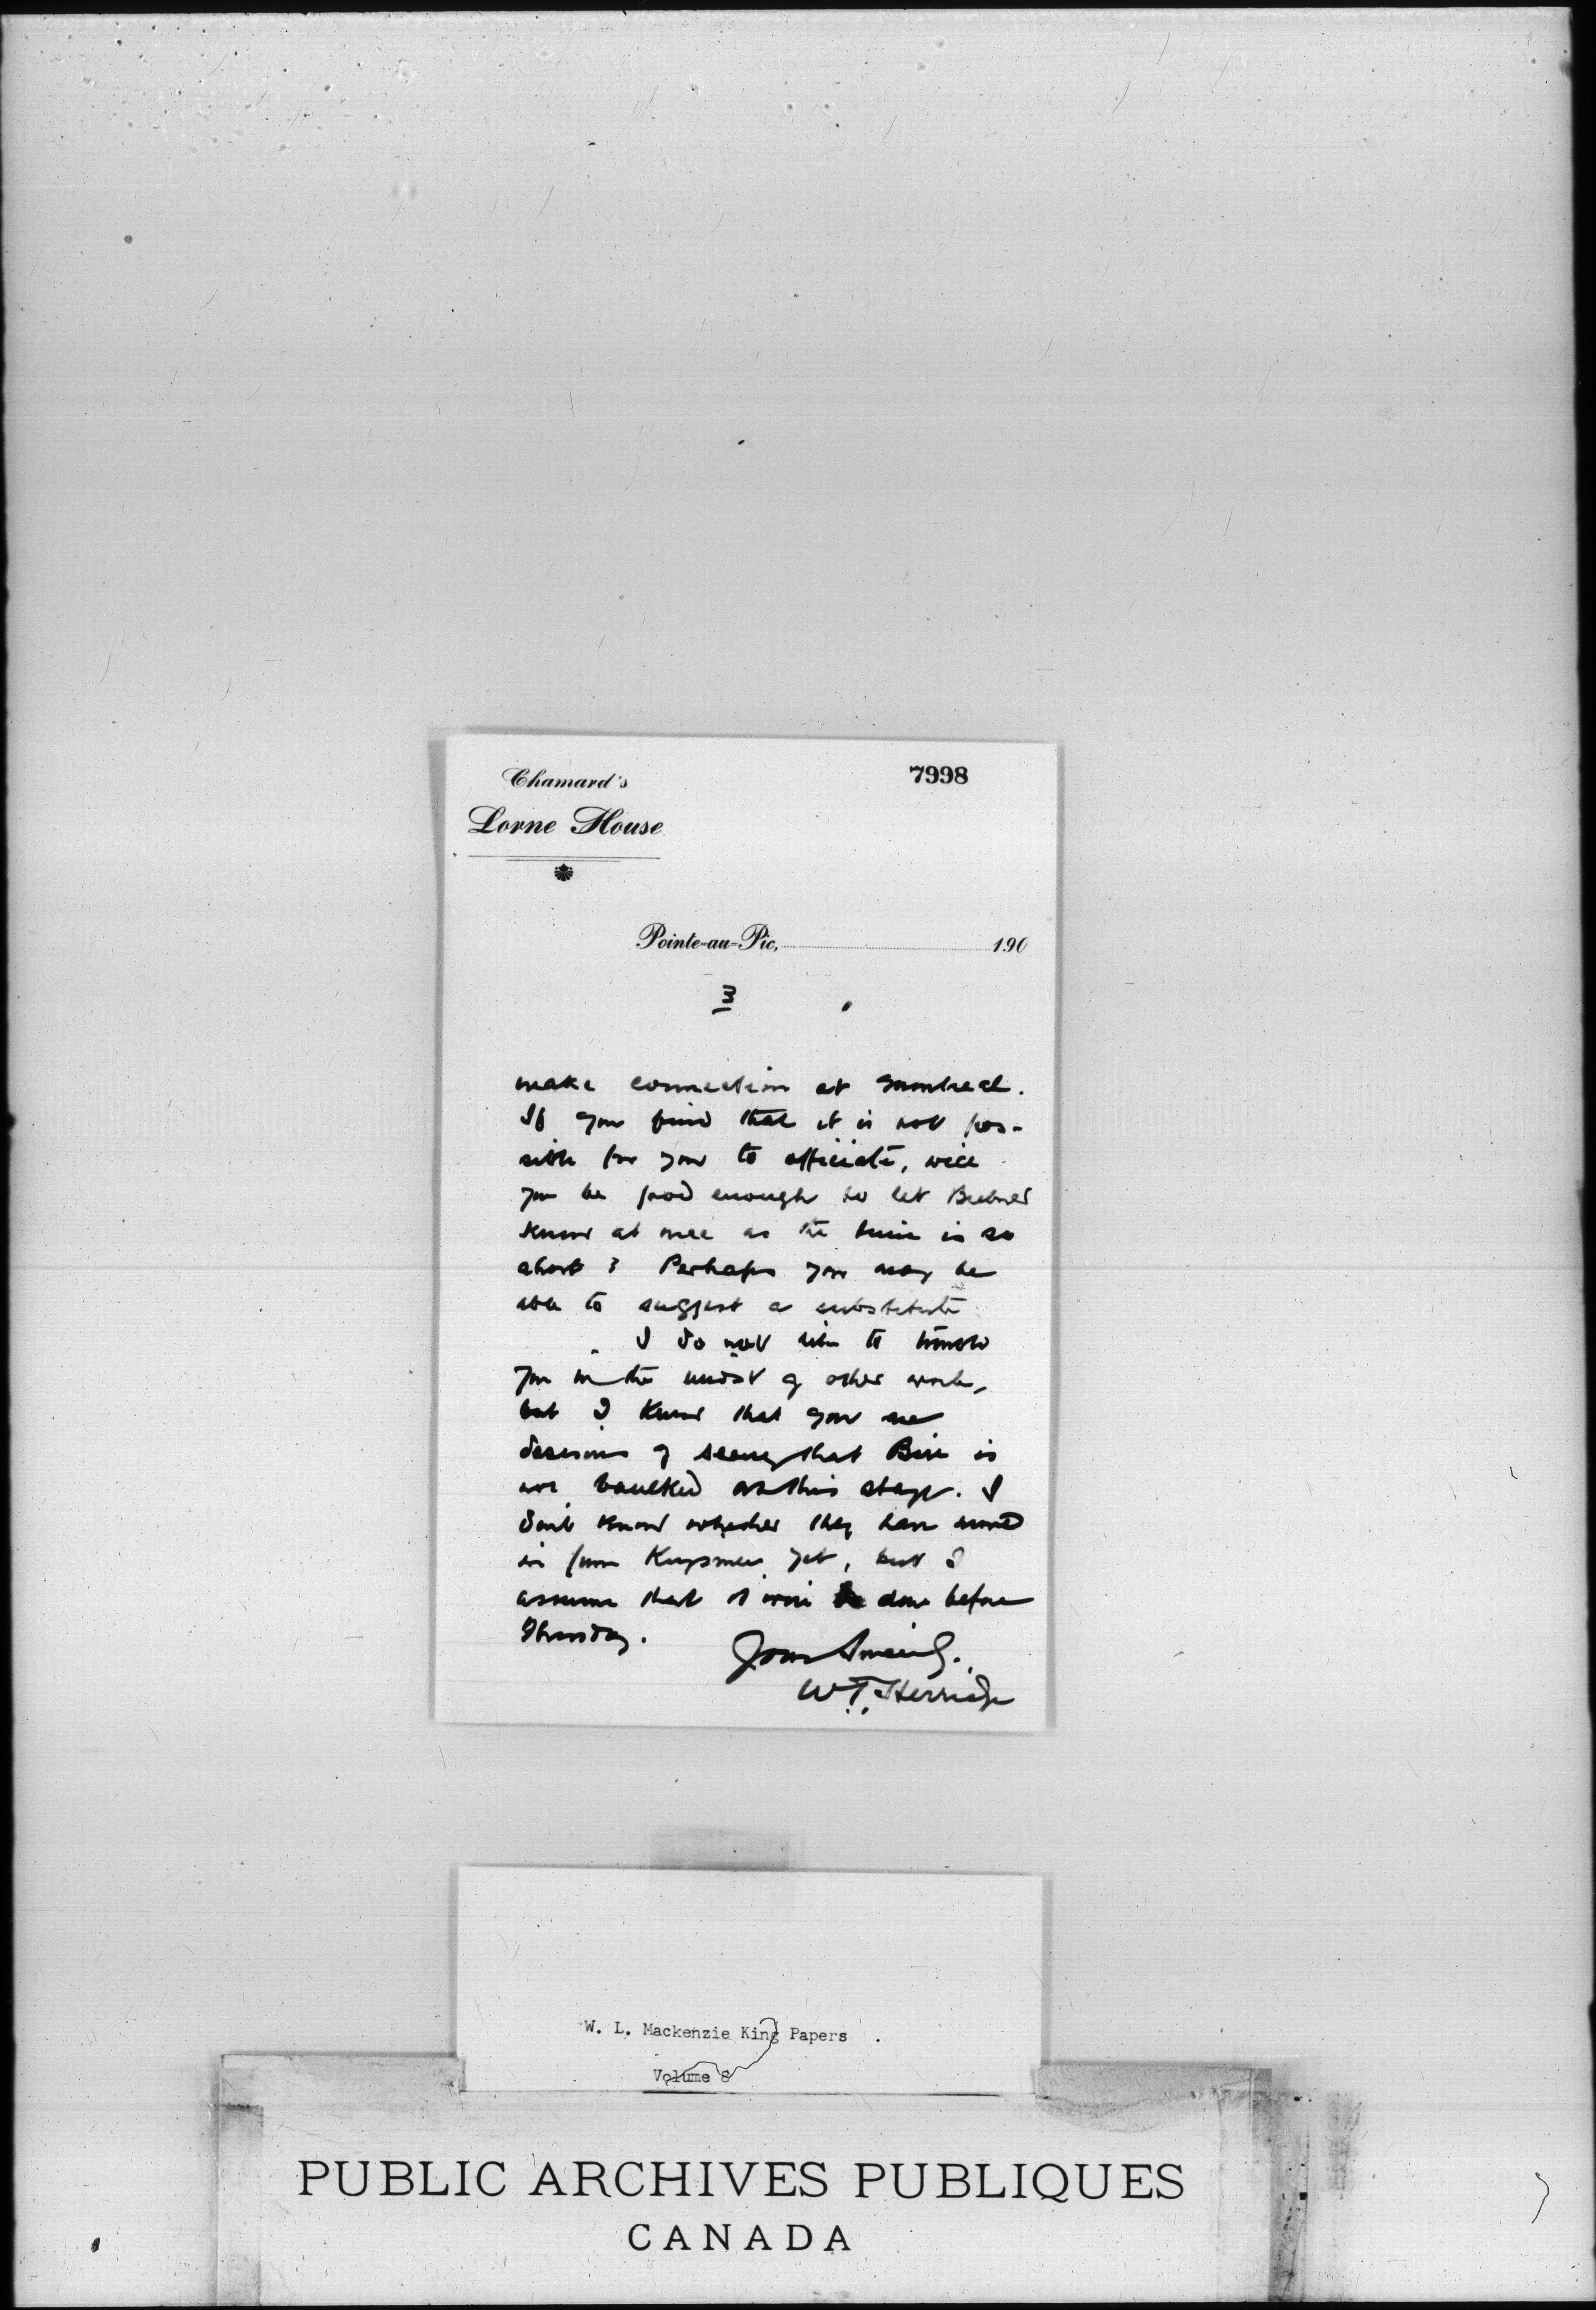 Chamard's
7998
Lorne House
Pointe-au-Pic, 190
3
make connection at Montreal.
If you find that it is not pos-
sible for you to officiate, will
you be good enough to let
know at once as the time is so
short? Perhaps you may be
able to suggest a substitute
I do not like to trouble
you in the midst of other work,
but I know that you are
desirous of seeing that Bill is
not baulked at this stage. I
don't know whether they have moved
in from Kingsmere yet, but I
assume that it will be done before
Thursday.
Yours Sincerely.
W. T. Herridge
W. L. Mackenzie King Papers
Volume 8
PUBLIC ARCHIVES PUBLIQUES
CANADA